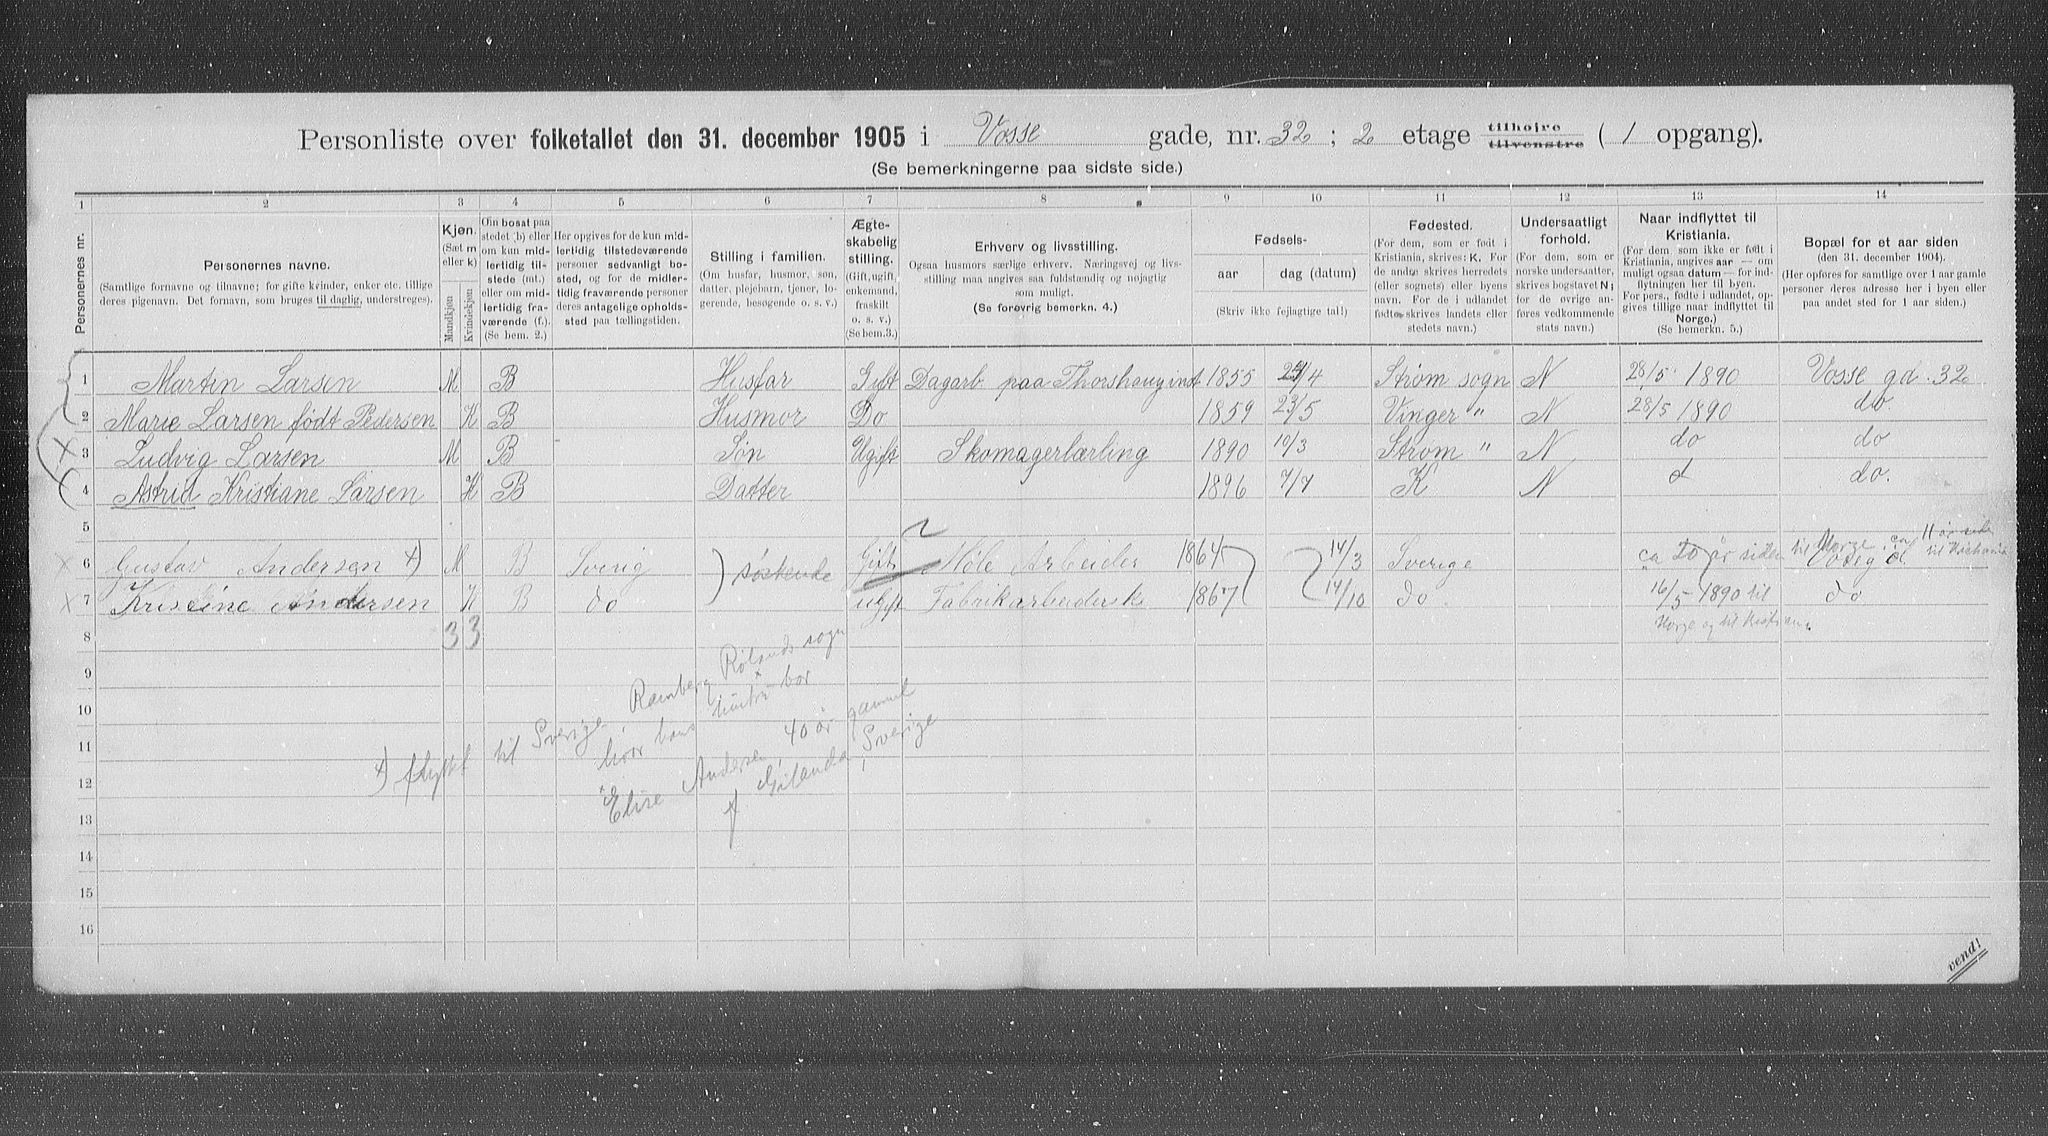 Personliste over folketallet den 31. december 1905 i Vosse gade, nr. 32 ; 2 etage tilhøjre tilvenstre ( 1 opgang).
(Se bemerkningerne paa sidste side.)
1 2 3 4 5 6 7 8 9 10 11 12 13 14
Personernes nr.
Personernes navne.
(Samtlige fornavne og tilnavne; for gifte kvinder, enker etc. tillige
deres pigenavn. Det fornavn, som bruges til daglig, understreges).
Kjøn.
(Sæt m
eller k)
Mandkjøn
Kvindekjøn
Om bosat paa
stedet (b) eller
om kun mid-
lertidig til-
stede (mt.)
eller om mid-
lertidig fra-
værende (f.).
(Se bem. 2.)
Her opgives for de kun mid-
lertidig tilstedeværende
personer sedvanlig bo-
sted, og for de midler-
tidig fraværende personer
deres antagelige opholds-
sted paa tællingstiden.
Stilling i familien.
(Om husfar, husmor, søn,
datter, plejebarn, tjener, lo-
gerende, besøgende o. s. v.)
Ægte-
skabelig
stilling.
(Gift, ugift,
enkemand,
fraskilt
o. s. v.)
(Se bem.3.)
Erhverv og livsstilling.
Ogsaa husmors særlige erhverv. Næringsvej og livs-
stilling maa angives saa fuldstændig og nøjagtig
som muligt.
(Se forøvrig bemerkn. 4.)
Fødsels-
aar dag (datum)
(Skriv ikke fejlagtige tal!)
Fødested.
(For dem, som er født i
Kristiania, skrives: K. For
de andre skrives herredets
(eller sognets) eller byens
navn. For de i udlandet
fødte skrives landets eller
stedets navn.)
Undersaatligt
forhold.
(For dem, som er
norske undersaatter,
skrives bogstavet N;
for de øvrige an-
føres vedkommende
stats navn.)
Naar indflyttet til
Kristiania.
(For dem, som ikke er født i
Kristiania, angives aar — om
muligt ogsaa datum — for ind-
flytningen her til byen.
For pers., fødte i udlandet, op-
gives tillige naar indflyttet til
Norge.)
(Se bemerkn. 5.)
Bopæl for et aar siden
(den 31. december 1904).
(Her opføres for samtlige over 1 aar gamle
personer deres adresse her i byen eller
paa andet sted for 1 aar siden.)
1 Martin Larsen M B Husfar Gift Dagarb. paa Thorshaug ind 1855 24/4 Strøm sogn N 28/5 1890 Vosse gd. 32
2 Marie Larsen født Pedersen K B Husmor Do 1859 23/5 Vinger " N 28/5 1890 do.
3 Ludvig Larsen M B Søn Ugift Skomagerlærling 1890 10/3 Strøm " N do do
4 Astrid Kristiane Larsen K B Datter 1896 7/7 K N d do.
5
6 Gustav Andersen x) M B Sverig søskende Gift Møle Arbeider 1864 14/3 Sverige ca 20 år siden til Norge, ca 11 år side til Kristiania
7 Kristine Andersen K B do Ugift Fabrikarbeidersk 1867 14/10 do. 16/5 1890 til do
Norge og til Kristiania.
8 3 3
9
10
11
12
13
14
15
16
x) flyttet til Sverige, Ramberg Rølands sogn
hvor hans hustru bor
Elise Andersen, 40 år gammel
f Gilanda, Sverige
vend!